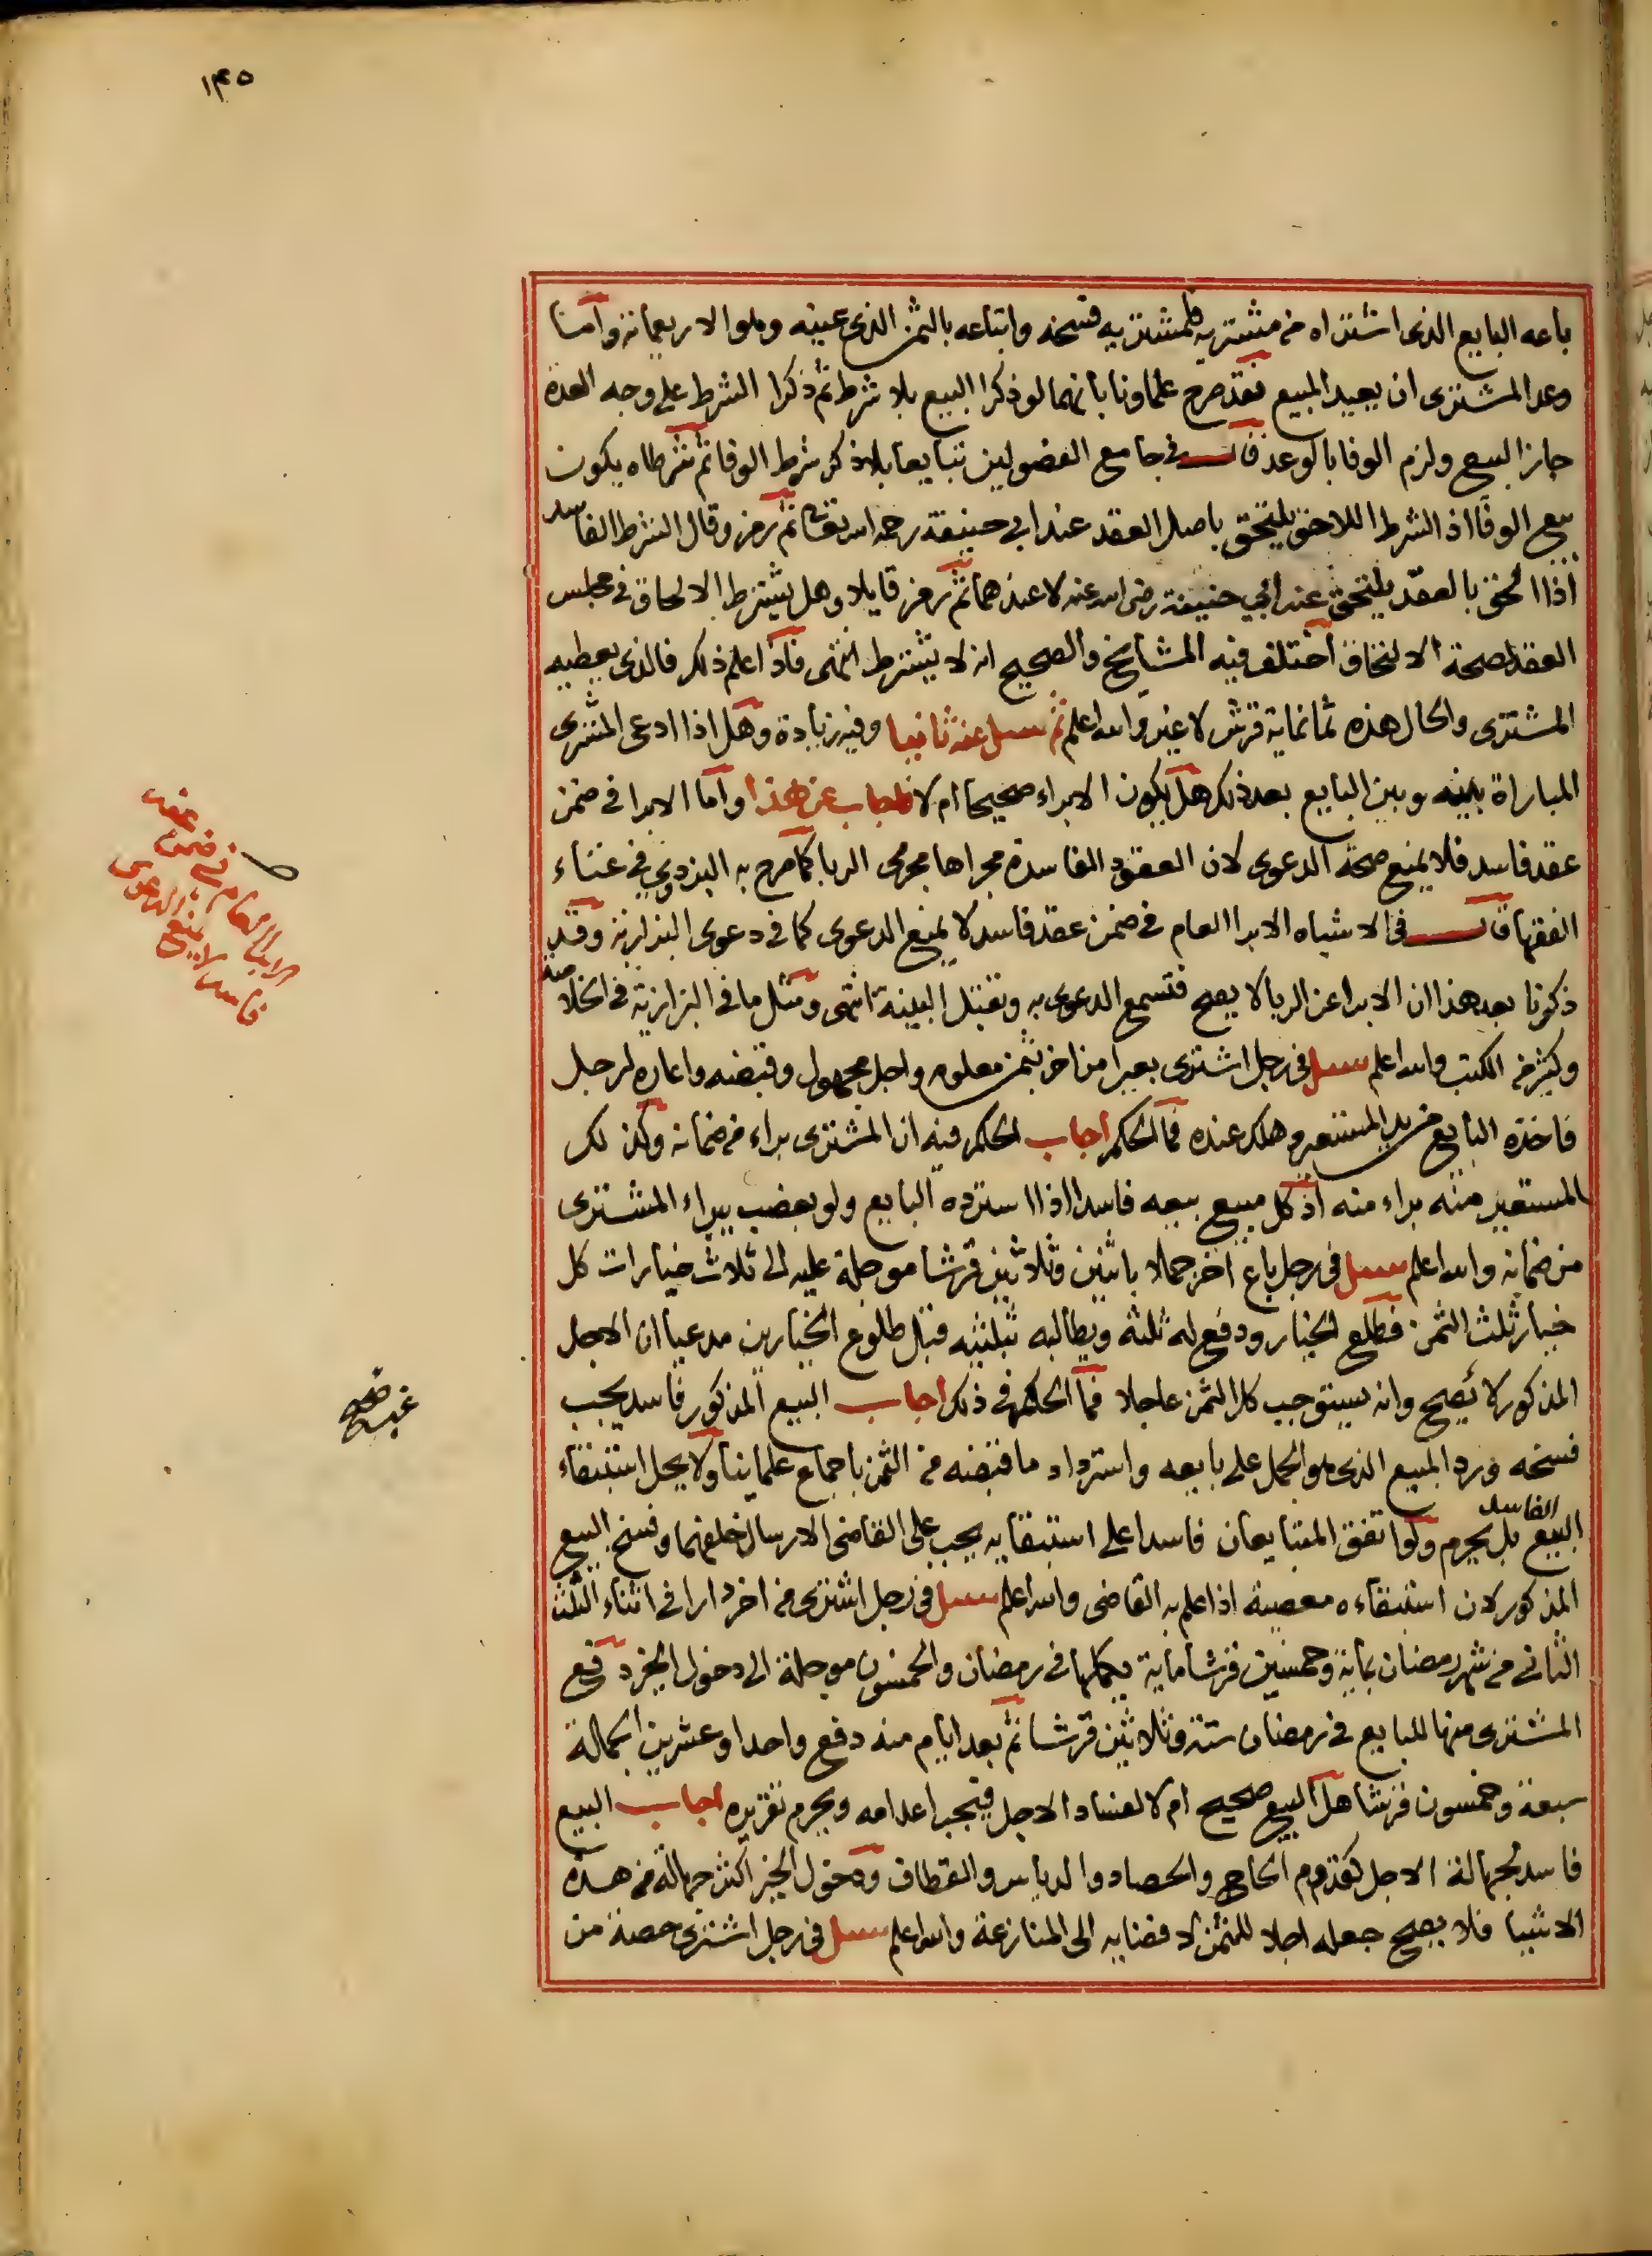 ١٤٥
باعه البايع الذى اشتراه من مشتريه فلمشتريه فسخه وابتاعه بالثمن الذى عينه وهو الاربعمائة واما
وعد المشترى ان يعيد المبيع فقد صرح علماونا بانهما لو ذكرا البيع بلا شرط ثم ذكرا الشرط على وجه العدة
جاز البيع ولزم الوفا بالوعد قال فى جامع الفصولين تبايعا بلا ذكر شرط الوفا ثم شرطاه يكون
بيع الوفا اذ الشرط اللاحق يلتحق باصل العقد عند ابي حنيفة رحمه الله تعالى ثم رمز وقال الشرط الفاسد
اذا الحق بالعقد يلتحق عند ابي حنيفة رضى الله عنه لا عندهما ثم رمز قايلا وهل يشترط الالحاق فى مجلس
العقد لصحة الالتحاق اختلف فيه المشايخ والصحيح انه لا يشترط انتهى فاذا علم ذلك فالذى يعطيه
المشترى والحال هذه ثمانماية قرش لا غير والله اعلم ثم سىل عنه ثانيا وفيه زيادة وهل اذا ادعى المشترى
المباراة بينه وبين البايع بعد ذلك هل يكون الابراء صحيحا ام لا فاجاب عن هذا واما الابرا فى ضمن
عقد فاسد فلا يمنع صحة الدعوى لان العقود الفاسدة مجراها مجرى الربا كما صرح به البزدوي في غناء
الفقها قال فى الاشباه الابرا العام فى ضمن عقد فاسد لا يمنع الدعوى كما فى دعوى البزازية وقد
ذكرنا بعد هذا ان الابرا عن الربا لا يصح فتسمع الدعوى به وتقبل البينة انتهى ومثل ما فى البزازية فى الخلاصة
وكثير من الكتب والله اعلم سىل فى رجل اشترى بعيرا من اخر بثمن معلوم واجل مجهول وقبضه واعاره لرجل
فاخذه البايع من يد المستعير وهلك عنده فما الحكم اجاب الحكم فيه ان المشترى براء من ضمانه وكذلك
المستعير منه براء منه اذ كل مبيع بيعه فاسدا اذا استرده البايع ولو بغصب يبراء المشترى
من ضمانه والله اعلم سىل فى رجل باع اخر جملا باثنين وثلاثين قرشا موجلة عليه الى ثلاث خيارات كل
خيار ثلث الثمن فطلع الخيار ودفع له ثلثه ويطالبه بثلثيه قبل طلوع الخيارين مدعيا ان الاجل
المذكور لا يصح وانه يستوجب كل الثمن عاجلا فما الحكم فى ذلك اجاب البيع المذكور فاسد يجب
فسخه ورد المبيع الذى هو الجمل على بايعه واسترداد ما قبضه من الثمن باجماع علمائنا ولا يحل استبقاء
البيع الفاسد بل يحرم ولو اتفق المتبايعان فاسدا على استبقايه يجب على القاضى الارسال خلفهما وفسخ البيع
المذكور لان استبقاءه معصية اذا علم به القاضى والله اعلم سىل فى رجل اشترى من اخر دارا فى اثناء الثلث
الثانى من شهر رمضان بماية وخمسين قرشا ماية يكملها فى رمضان والخمسون موجلة الى دخول الخبز دفع
المشترى منها للبايع فى رمضان ستة وثلاثين قرشا ثم بعد ايام منه دفع واحدا وعشرين الجملة
سبعة وخمسون قرشا هل البيع صحيح ام لا لفساد الاجل فيجب اعدامه ويحرم تقريره اجاب البيع
فاسد لجهالة الاجل كقدوم الحاج والحصاد والدياس والقطاف ودخول الخبز اكثر جهالة من هذه
الاشيا فلا يصح جعله اجلا للثمن لافضايه الى المنازعة والله اعلم سىل فى رجل اشترى حصة من
الابرا العام فى ضمن عقد
فاسد لا يمنع الدعوى